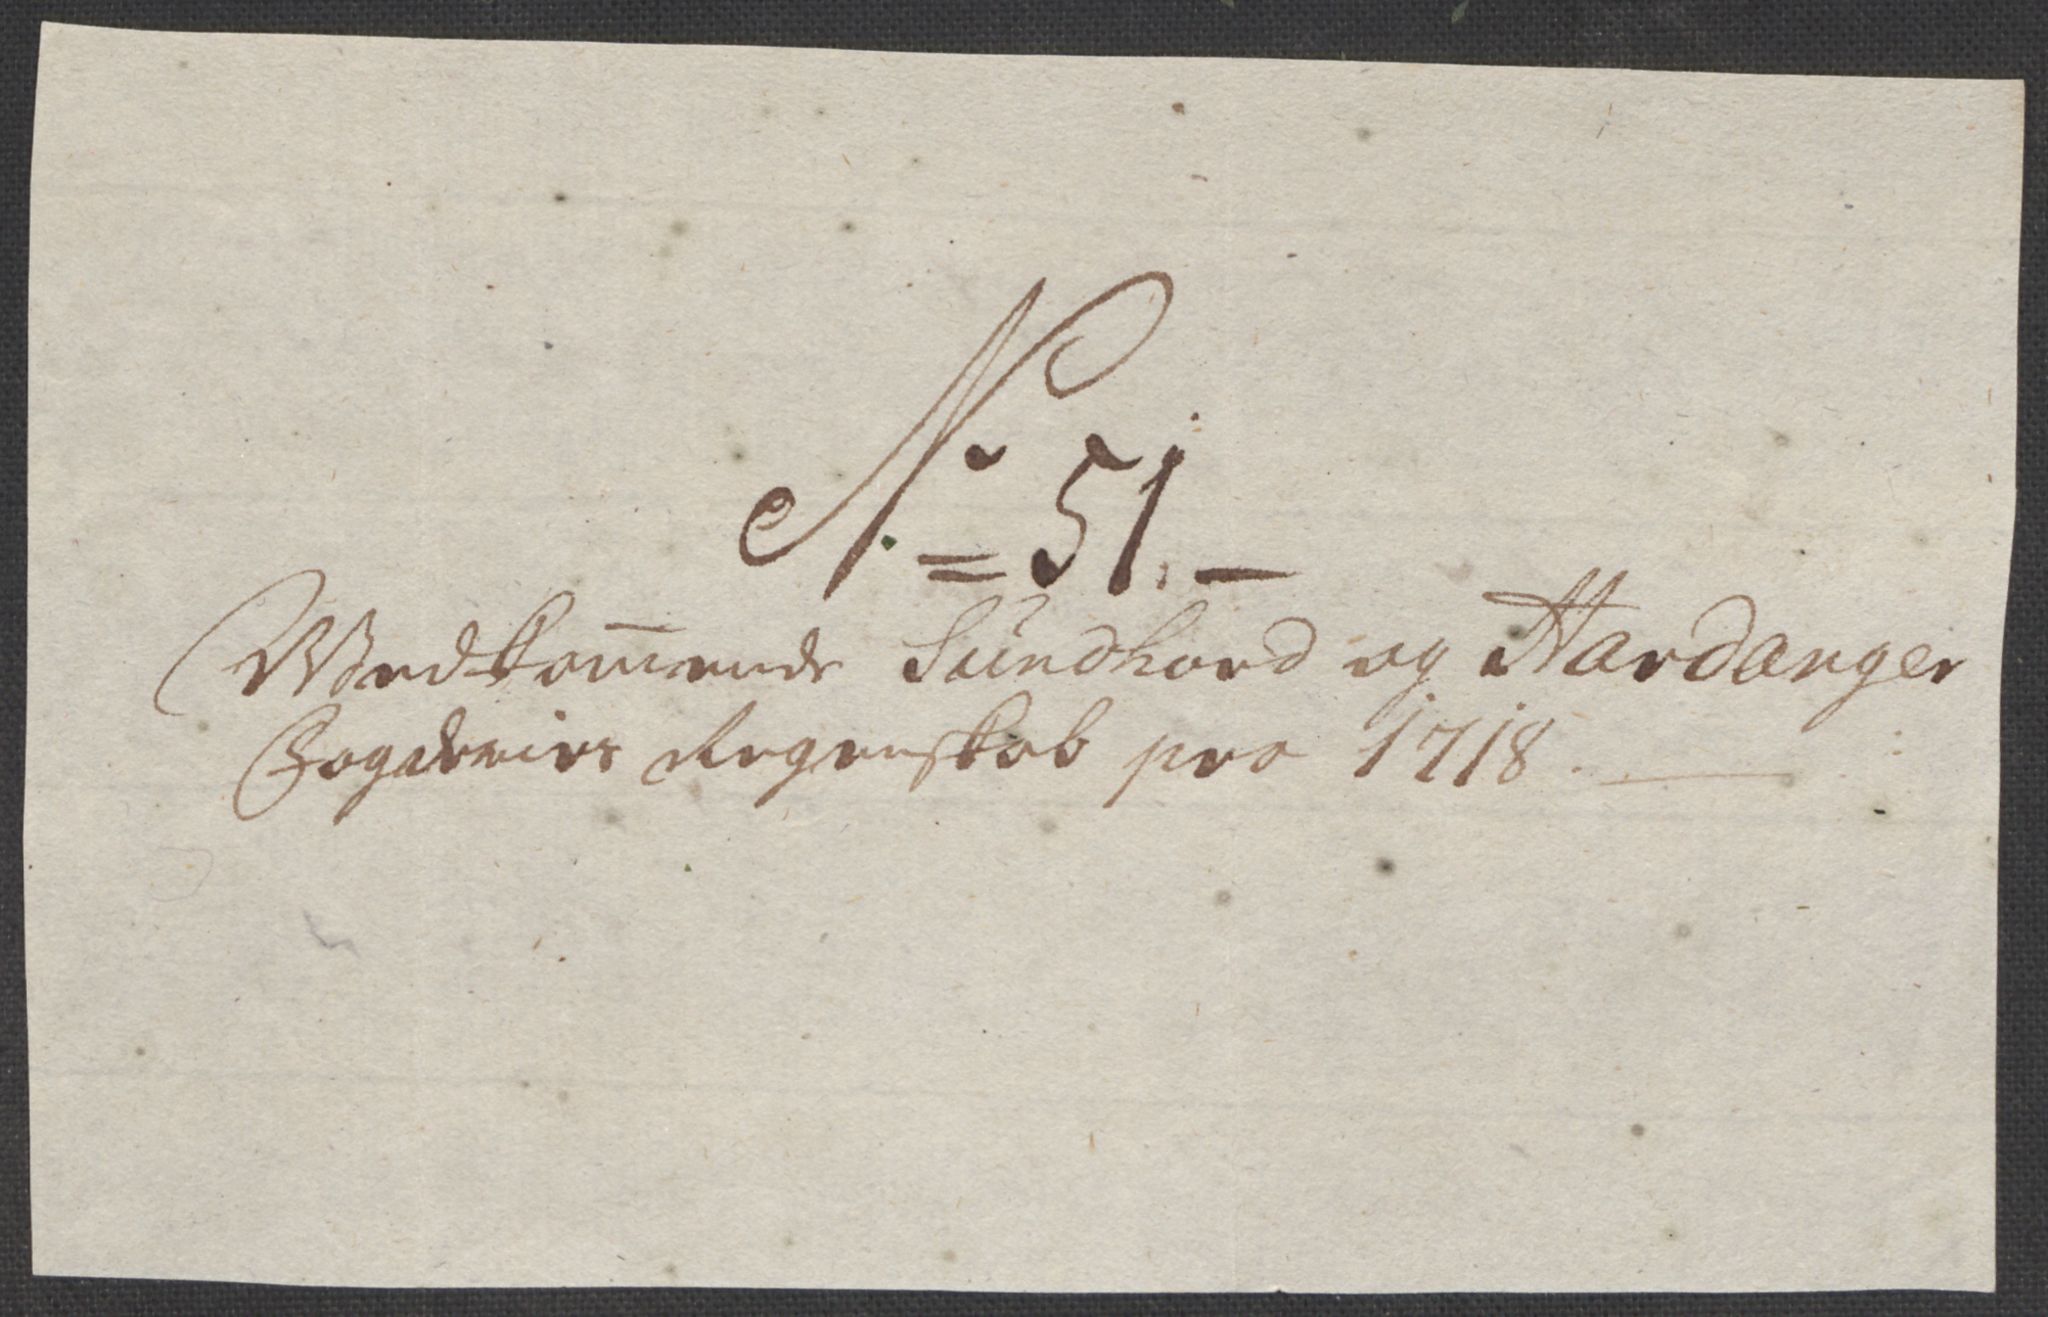 No = 51. —
Wedkom̅ende Sundhord og Hardanger
Fogderies Regenskab pro 1718. —